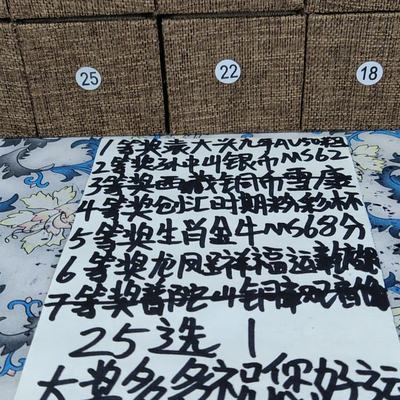 25
22
18
1等奖袁大头九年AU50粗
2等奖孙中山银币MS62
3等奖西藏铜币雪康
4等奖 时期粉彩杯
5等奖生肖金牛MS68分
6等奖龙凤呈祥福运
7等奖普陀山铜章观音像
25选1
大奖多多祝您好运